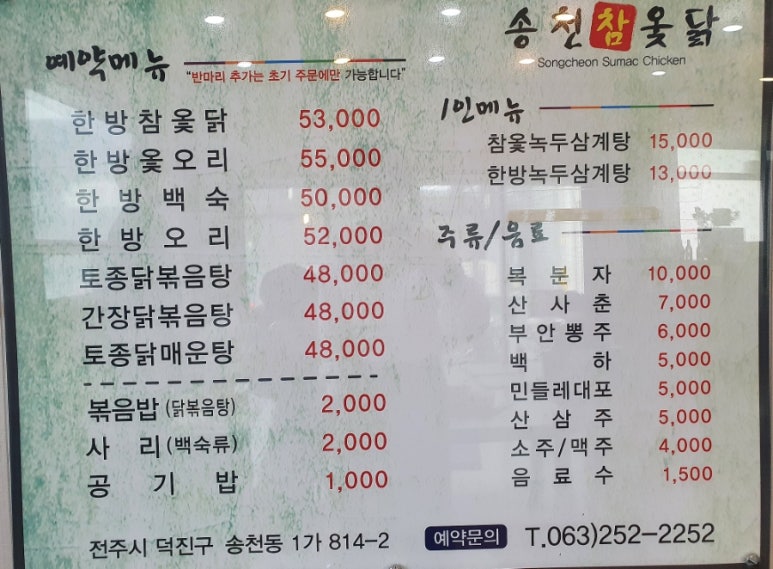 송천참옻닭
Songcheon Sumac Chicken
예약메뉴
"반마리 추가는 초기 주문에만 가능합니다"
한방참옻닭 53,000
한방옻오리 55,000
한방백숙 50,000
한방오리 52,000
토종닭볶음탕 48,000
간장닭볶음탕 48,000
토종닭매운탕 48,000
볶음밥 (닭볶음탕) 2,000
사리 (백숙류) 2,000
공기밥 1,000
1인메뉴
참옻녹두삼계탕 15,000
한방녹두삼계탕 13,000
주류/음료
복분자 10,000
산사춘 7,000
부안뽕주 6,000
백하 5,000
민들레대포 5,000
산삼주 5,000
소주/맥주 4,000
음료수 1,500
전주시 덕진구 송천동 1가 814-2
예약문의 T.063)252-2252